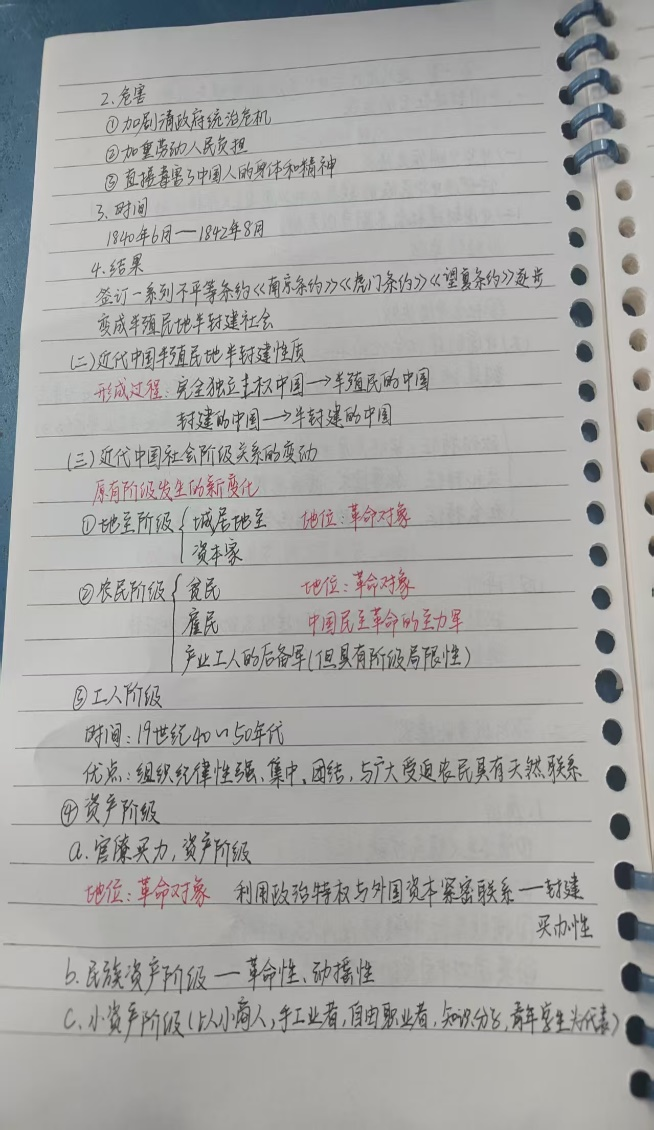 2.危害
①加剧清政府统治危机
②加重劳动人民负担
③直接毒害了中国人的身体和精神
3.时间
1840年6月—1842年8月
4.结果
签订一系列不平等条约《南京条约》《虎门条约》《望厦条约》逐步
变成半殖民地半封建社会
(二)近代中国半殖民地半封建性质
形成过程:完全独立主权中国→半殖民的中国
封建的中国→半封建的中国
(三)近代中国社会阶级关系的变动
原有阶级发生的新变化
①地主阶级{城居地主 地位:革命对象
资本家
②农民阶级{贫民 地位:革命对象
雇民 中国民主革命的主力军
产业工人的后备军(但具有阶级局限性)
③工人阶级
时间:19世纪40~50年代
优点:组织纪律性强、集中、团结,与广大受迫农民具有天然联系
④资产阶级
a.官僚买力,资产阶级
地位:革命对象 利用政治特权与外国资本紧密联系—封建
买办性
b.民族资产阶级—革命性、动摇性
C.小资产阶级(以小商人,手工业者,自由职业者,知识分子,青年学生为代表)